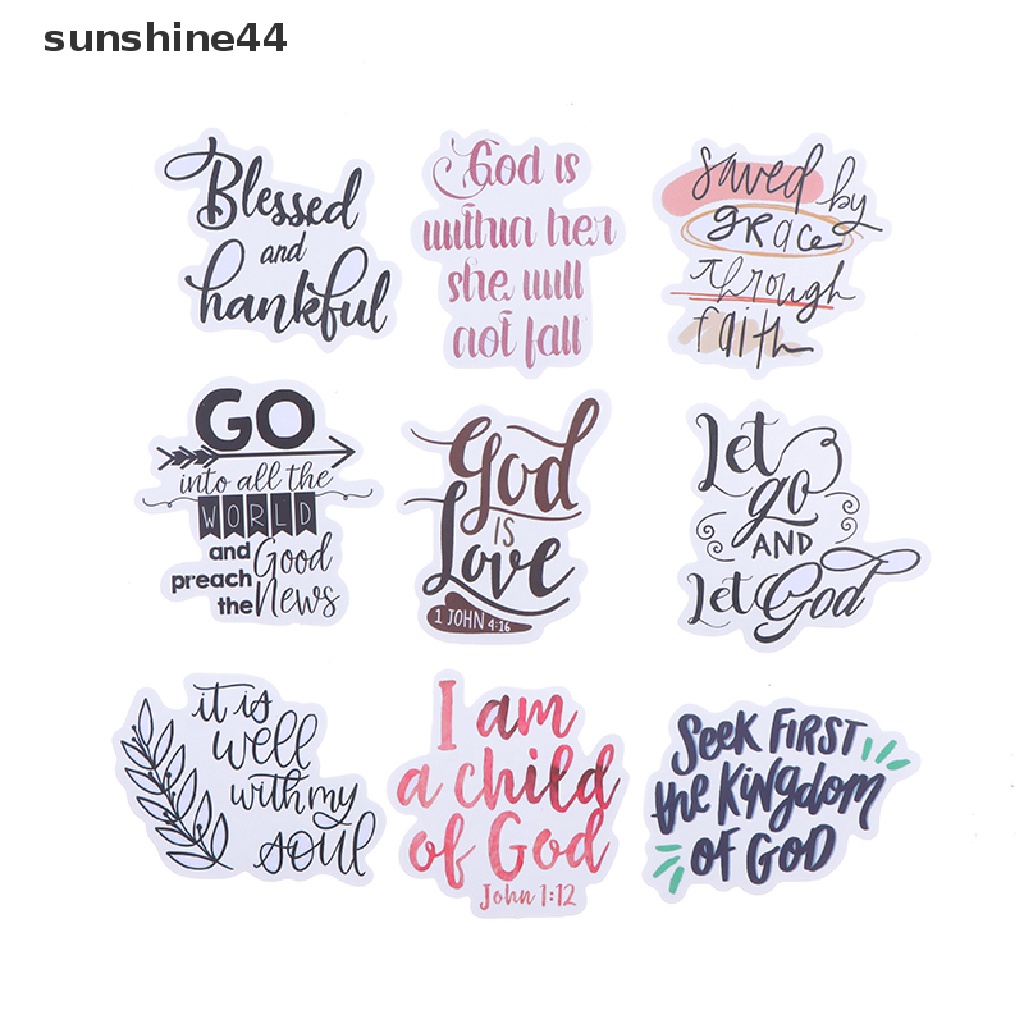 sunshine44
Blessed
and
thankful
God is
within her
she will
not fall
saved by
grace
through
faith
GO
into all the
WORLD
and Good
preach
the News
God
IS
Love
1 JOHN 4:16
Let
go
AND
Let God
it is
well
with my
soul
I am
a child
of God
John 1:12
Seek FIRST
the Kingdom
of GOD